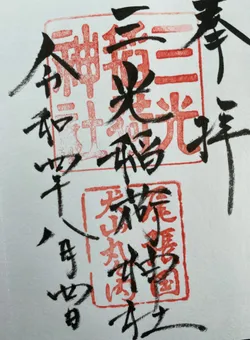 奉拝
三光稲荷神社
令和四年八月四日
三光
稲荷
神社
尾張国
犬山丸の内